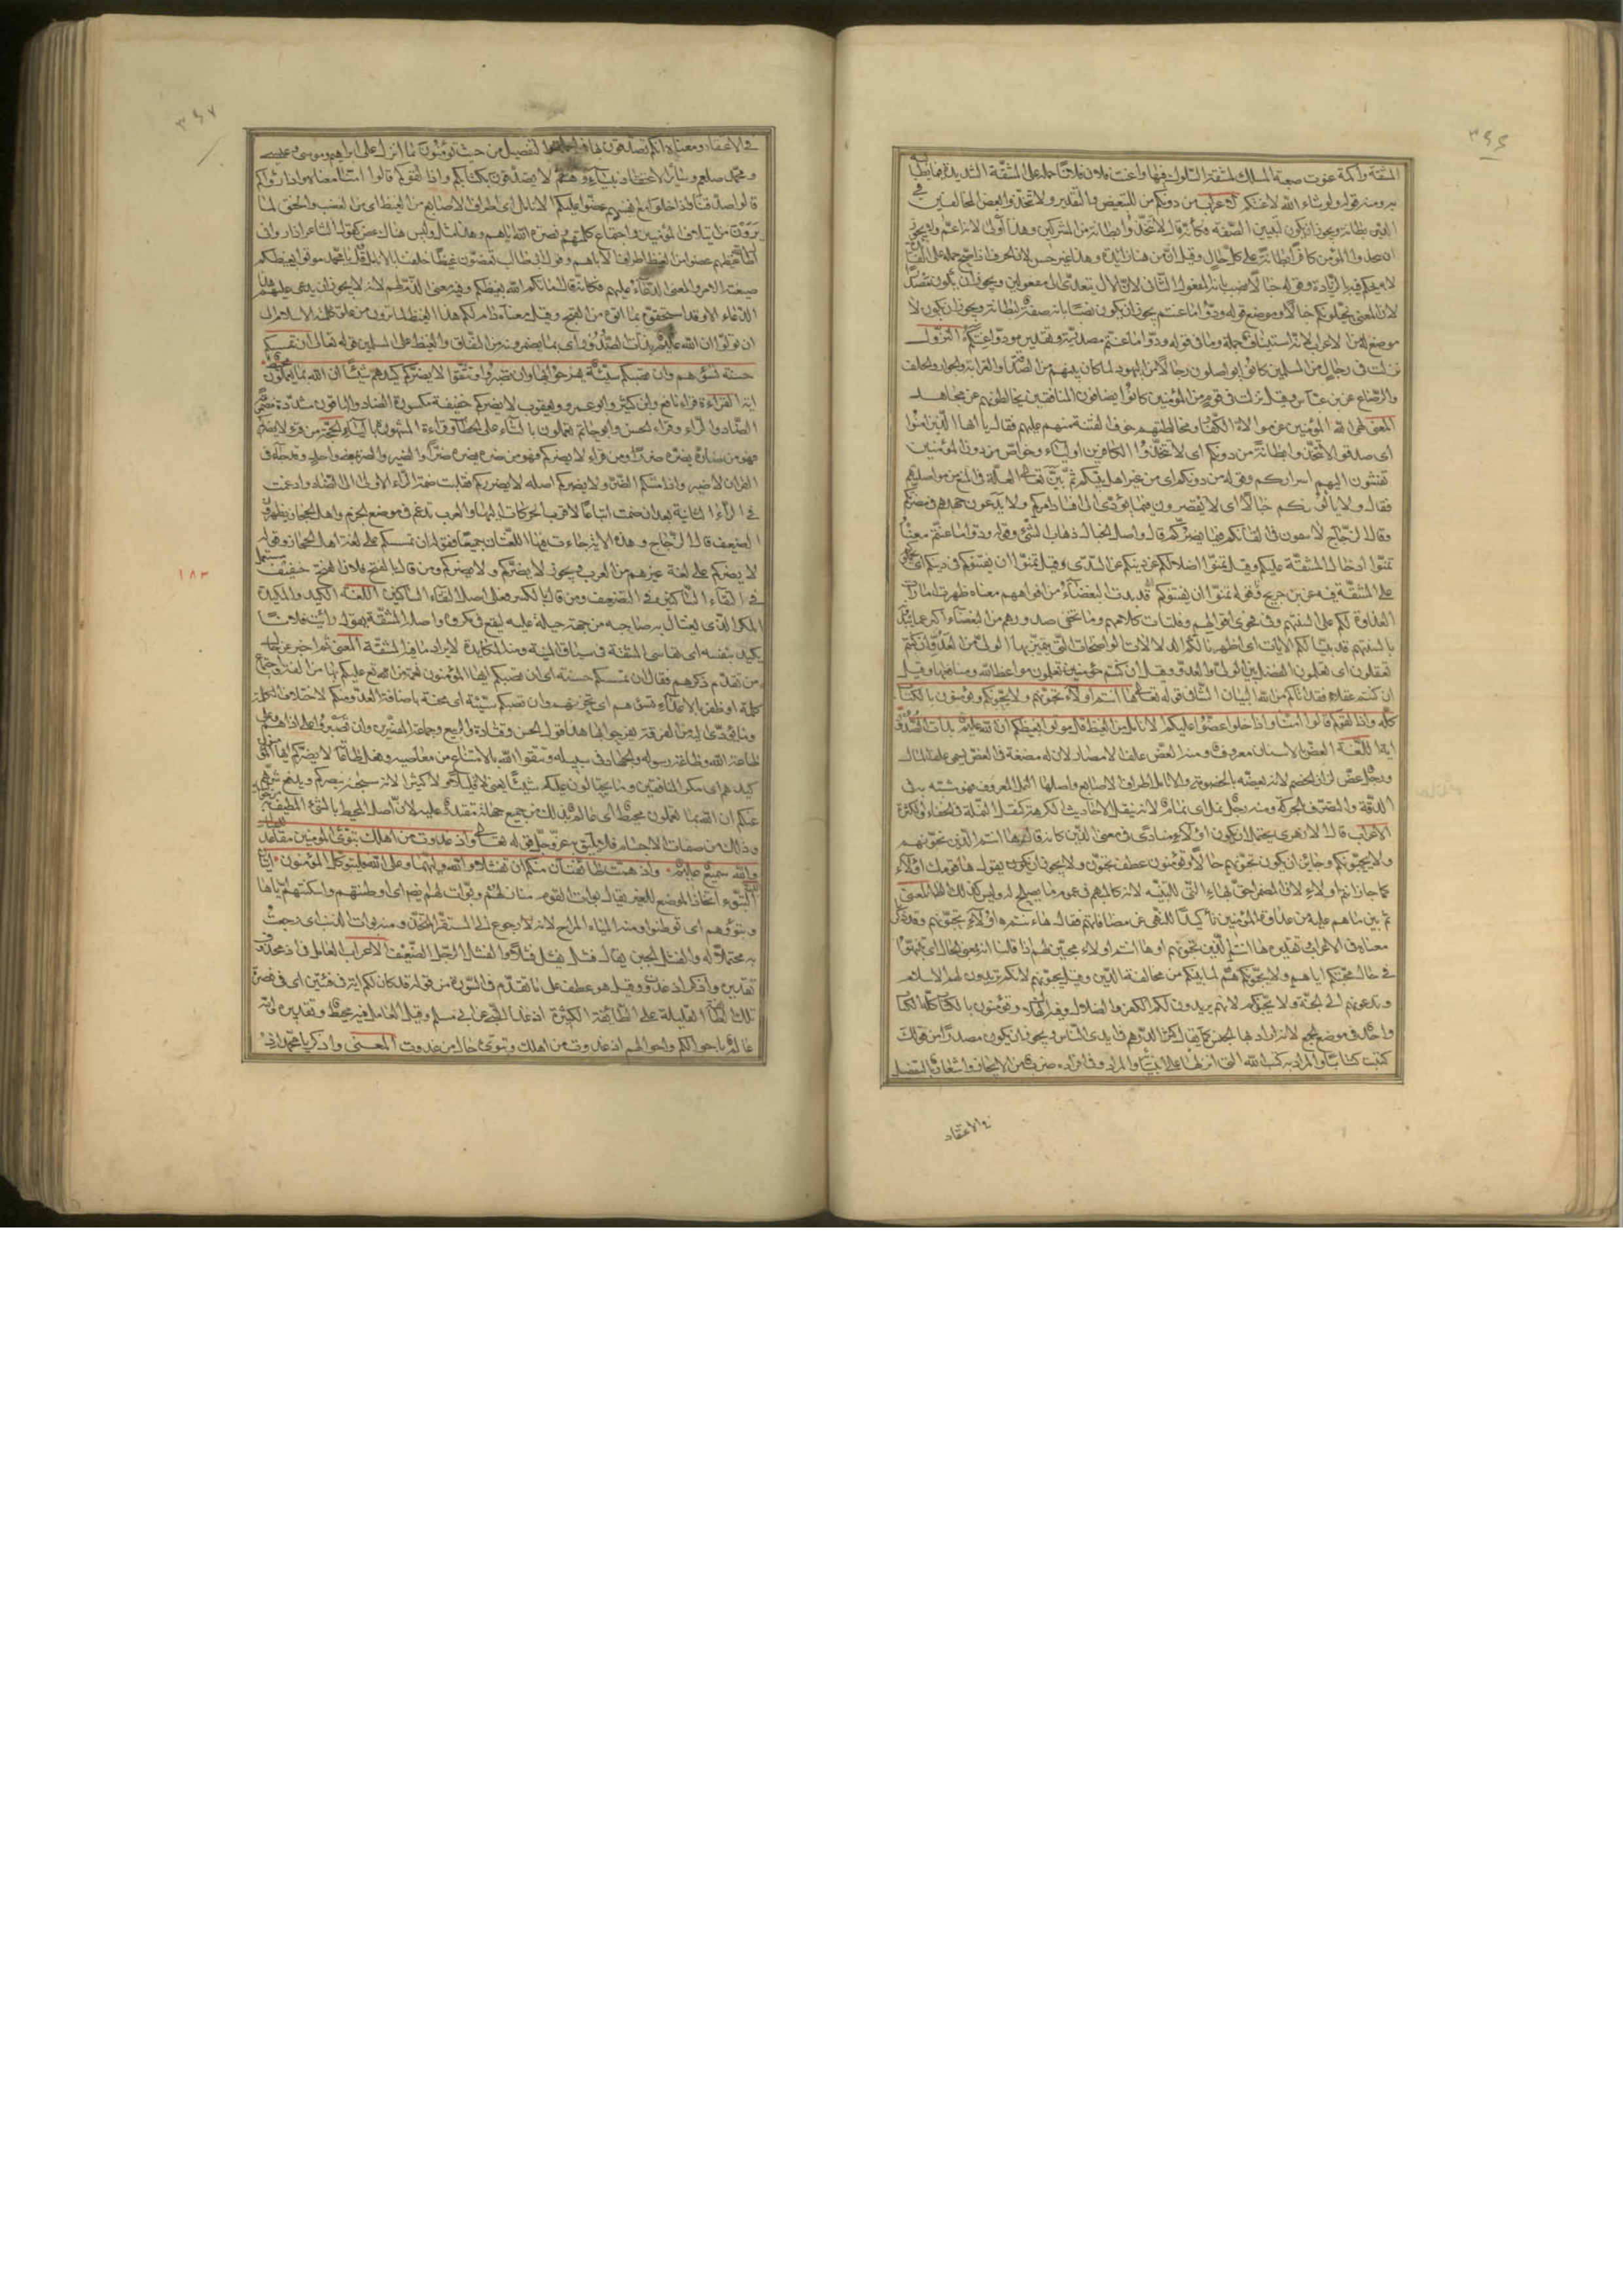 ٣٤٦
المشقة واكمة عنوت صعبة المسلك لمشقة السلوك فيها واعنت فلان فلانا حمله على المشقة الشديدة فيما يطالبه
به ومنه قوله ولو شاء الله لاعنتكم الاعراب من دونكم من للتبعيض والتقدير ولا تتخذوا بعض المخالفين في
الدين بطانة ويجوز ان يكون لتبيين الصفة فكأنه قال لا تتخذوا بطانة من المشركين وهذا أولى لانه اعم ولا يجوز
ان يتخذ المؤمن كافرا بطانة على كل حال وقيل ان من هنا زائدة وهذا غير حسن لان الحرف اذا صح حمله على الفائدة
لا يحكم فيه الزيادة وقوله خبالا نصب بانه المفعول الثانى لان الألو يتعدى الى مفعولين ويجوز ان يكون مصدرا
لان المعنى يخبلونكم خبالا وموضع قوله ودوا ما عنتم يجوز ان يكون نصبا بانه صفة لبطانة ويجوز ان يكون لا
موضع له من الاعراب لانه استيناف جملة وما فى قوله ودوا ما عنتم مصدرية وتقديره ودوا عنتكم النزول
نزلت فى رجال من المسلمين كانوا يواصلون رجالا من اليهود لما كان بينهم من الصداقة والقرابة والجوار والحلف
والرضاع عن بن عباس وقيل نزلت فى قوم من المؤمنين كانوا يصافون المنافقين يخالطونهم عن مجاهد
المعنى نهى الله المؤمنين عن موالاة الكفار ومخالطتهم خوف الفتنة منهم عليهم فقال يا ايها الذين امنوا
اى صدقوا لا تتخذوا بطانة من دونكم اى لا تتخذوا الكافرين اولياء وخواص من دون المؤمنين
تفشون اليهم اسراركم وقوله من دونكم اى من غير اهل ملتكم ثم بين تعالى العلة فى المنع من مواصلتهم
فقال لا يألونكم خبالا اى لا يقصرون فيما يؤدى الى افساد امركم ولا يدعون جهدهم فى مضرتكم
وقال الزجاج لا يبقون غاية فى القائكم فيما يضركم قال واصل الخبال ذهاب الشئ وقوله ودوا ما عنتم معناه
تمنوا ادخال المشقة عليكم وقيل تمنوا اضلالكم عن دينكم عن السدى وقيل تمنوا ان يفتنوكم فى دينكم اى
على المشقة فيه عن بن جريج قد بدت البغضاء من افواههم معناه ظهرت امارات
العداوة لكم على السنتهم وفى فحوى اقوالهم وفلتات كلامهم وما تخفى صدورهم من البغضاء اكبر مما يبدون
بالسنتهم قد بينا لكم الآيات اى اظهرنا لكم الدلالات الواضحات التى يتميز بها الولى من العدو ان كنتم
تعقلون اى تعلمون الفضل بين الولى والعدو وقيل ان كنتم مؤمنين تعلمون مواعظ الله ومنافعها وقيل
ان كنتم عقلاء فقد اتاكم من الله البيان الشافى قوله تعالى ها انتم اولاء تحبونهم ولا يحبونكم وتؤمنون بالكتاب
كله واذا لقوكم قالوا امنا واذا خلوا عضوا عليكم الانامل من الغيظ قل موتوا بغيظكم ان الله عليم بذات الصدور
اية اللغة العض بالاسنان معروف ومنه العض علف الامصار لان له مضغة فى العض يسمى علفا للمال
ورجل عض لزاز الخصم لانه يعضه بالخصومة والانامل اطراف الاصابع واصلها النمل المعروف فهو مشبه به فى
الدقة والتصرف بالحركة ومنه رجل نمل اى نمام لانه ينقل الاحاديث الكرهة كنقل النملة فى الخفاء والكثرة
الاعراب قال الازهرى يحتمل ان يكون اولاء منادى فى معنى الذين كأنه قال ها انتم الذين تحبونهم
ولا يحبونكم وجائز ان يكون تحبونهم حالا وتؤمنون عطف تحبون ولا يجوز ان يكون يقول ها قومك اولاء
كما جاز انتم اولاء لان المضمر احق بهاء التى للتنبيه لانه كالمبهم فى عموم ما يصلح له وليس كذلك الظاهر المعنى
ثم بين ما هم عليه من عداوة المؤمنين تأكيدا للنهى عن مصافاتهم فقال ها انتم اولاء تحبونهم وقد ذكرنا
معناه فى الاعراب تقديره ها انتم الذين تحبونهم او ها انتم اولاء محبين لهم اذا قلنا انه بمعنى الحال اى تنبهوا
فى حال محبتكم اياهم ولا يحبونكم هم لما بينكم من مخالفة الدين وقيل تحبونهم لانكم تريدون لهم الاسلام
وتدعونهم الى الجنة ولا يحبونكم لانهم يريدون لكم الكفر والضلال وفيه الهلاك وتؤمنون بالكتاب كله الكتاب
واحد فى موضع الجمع لانه اراد به الجنس كما يقال كثر الدرهم فى ايدى الناس ويجوز ان يكون مصدرا من قولك
كتبت كتابا والمراد به كتب الله التى انزلها على انبيائه والمراد وفى افراده ضرب من الايجاز واشعار بالتفصيل
فى الاعتقاد
٣٤٧
فى الاعتقاد ومعناه انكم تصدقون بها فى الجملة والتفصيل من حيث تؤمنون بما انزل على ابراهيم وموسى وعيسى
ومحمد صلعم وسائر الانبياء وهم لا يصدقون بكتابكم واذا لقوكم قالوا امنا معناه واذا رأوكم
قالوا صدقنا واذا خلوا مع انفسهم عضوا عليكم الانامل اى اطراف الاصابع من الغيظ اى من الغضب والحنق لما
يرون من ايتلاف المؤمنين واجتماع كلمتهم ونصرة الله اياهم وهذا مثل وليس هناك عض كقول الشاعر اذا رأونى
اطال الله غيظهم عضوا من الغيظ اطراف الاباهيم وقول ابى طالب يعضون غيظا خلفنا بالانامل قل يا محمد موتوا بغيظكم
صيغته الامر والمعنى الدعاء عليهم فكأنه قال اماتكم الله بغيظكم وفيه معنى الذم لهم لانه لا يجوز ان يدعى عليهم هذا
الدعاء الا وقد استحقوه بما اتوه من القبح وقيل معناه دام لكم هذا الغيظ لما ترون من علو كلمة الاسلام الى
ان تموتوا ان الله عليم بذات الصدور اى بما يضمرونه من النفاق والغيظ على المسلمين قوله تعالى ان تمسسكم
حسنة تسؤهم وان تصبكم سيئة يفرحوا بها وان تصبروا وتتقوا لا يضركم كيدهم شيئا ان الله بما يعملون محيط
اية القراءة قراء نافع وابن كثير وابو عمرو ويعقوب لا يضركم خفيفة مكسورة الضاد والباقون مشددة مضمومة
الضاد والراء وقراء الحسن وابو حاتم تعملون بالتاء على الخطاب وقراءة المشهورة بالياء الحجة من قرأ لا يضركم
فهو من ضاره يضيره ضيرا ومن قراء لا يضركم فهو من ضره يضره ضرا والضير والضر بمعنى واحد وقد جاء فى
القران لا ضير واذا مسكم الضر ولا يضركم اصله لا يضرركم فنقلت ضمة الراء الاولى الى الضاد وادغمت
فى الراء الثانية بعد ان ضمت اتباعا لاقرب الحركات اليها والعرب تدغم فى موضع الجزم واهل الحجاز يظهرون
التضعيف قال الزجاج وهذه الاية جاءت فيها اللغتان جميعا فقوله ان تمسسكم على لغة اهل الحجاز وقوله
لا يضركم على لغة غيرهم من العرب ويجوز لا يضركم ولا يضركم ومن قال بالفتح فلان الفتح خفيف مستعمل
فى التقاء الساكنين فى التضعيف ومن قال بالكسر فعلى اصل التقاء الساكنين اللغة الكيد والمكيدة
المكر الذى يغتال به صاحبه من جهة حيلة عليه ليقع فى مكروه واصله المشقة يقول رأيت فلانا
يكيد بنفسه اى يقاسى المشقة فى سياق المنية ومنه المكايدة لايراد ما فيه المشقة المعنى ثم اخبر عن حال
من تقدم ذكرهم فقال ان تمسسكم حسنة اى ان تصبكم ايها المؤمنون نعمة من الله تع عليكم بها من الفة او اجتماع
كلمة او ظفر بالاعداء تسؤهم اى تحزنهم وان تصبكم سيئة اى محنة باصابة العدو منكم لاختلاف الكلمة
وما يؤدى اليه من الفرقة يفرحوا بها هذا قول الحسن وقتادة والربيع وجماعة المفسرين وان تصبروا على اذاهم وعلى
طاعة الله وطاعة رسوله والجهاد فى سبيله وتتقوا الله بالامتناع من معاصيه وفعل طاعاته لا يضركم ايها الموحدون
كيدهم اى مكر المنافقين وما يحتالون عليكم شيئا يعنى لا قليلا ولا كثيرا لانه سبحانه ينصركم ويدفع شرهم
عنكم ان الله بما يعملون محيط اى عالم بذلك من جميع جهاته مقتدر عليه لان اصل المحيط بالشئ المطيف به
وذلك من صفات الاجسام فلا يليق به عز وجل قوله تعالى واذ غدوت من اهلك تبوئ المؤمنين مقاعد للقتال
والله سميع عليم واذ همت طائفتان منكم ان تفشلا والله وليهما وعلى الله فليتوكل المؤمنون ايتان
التبوء اتخاذ الموضع للغير يقال بوأت القوم منازلهم وبوأت لهم ايضا اى اوطنتهم واسكنتهم اياها
وتبوؤهم اى توطنوا ومنه المباءة المراح لانه رجوع الى المستقر المتخذ ومنه بوأت بالذنب اى رجعت
به محتملا له والفشل الجبن يقال فشل يفشل فشلا والفشل الرجل الضعيف الاعراب العامل فى اذ محذوف
تقديره واذكر اذ غدوت وقيل هو عطف على ما تقدم فى السورة من قوله قد كان لكم اية فى فئتين اى فى نصرة
تلك الطائفة القليلة على الطائفة الكثيرة اذ غدا النبى عن ابى مسلم وقيل العامل فيه محيط وتقديره والله
عالم باحوالكم واحوالهم اذ غدوت من اهلك وتبوئ حال من غدوت المعنى واذكر يا محمد اذ
١٨٣